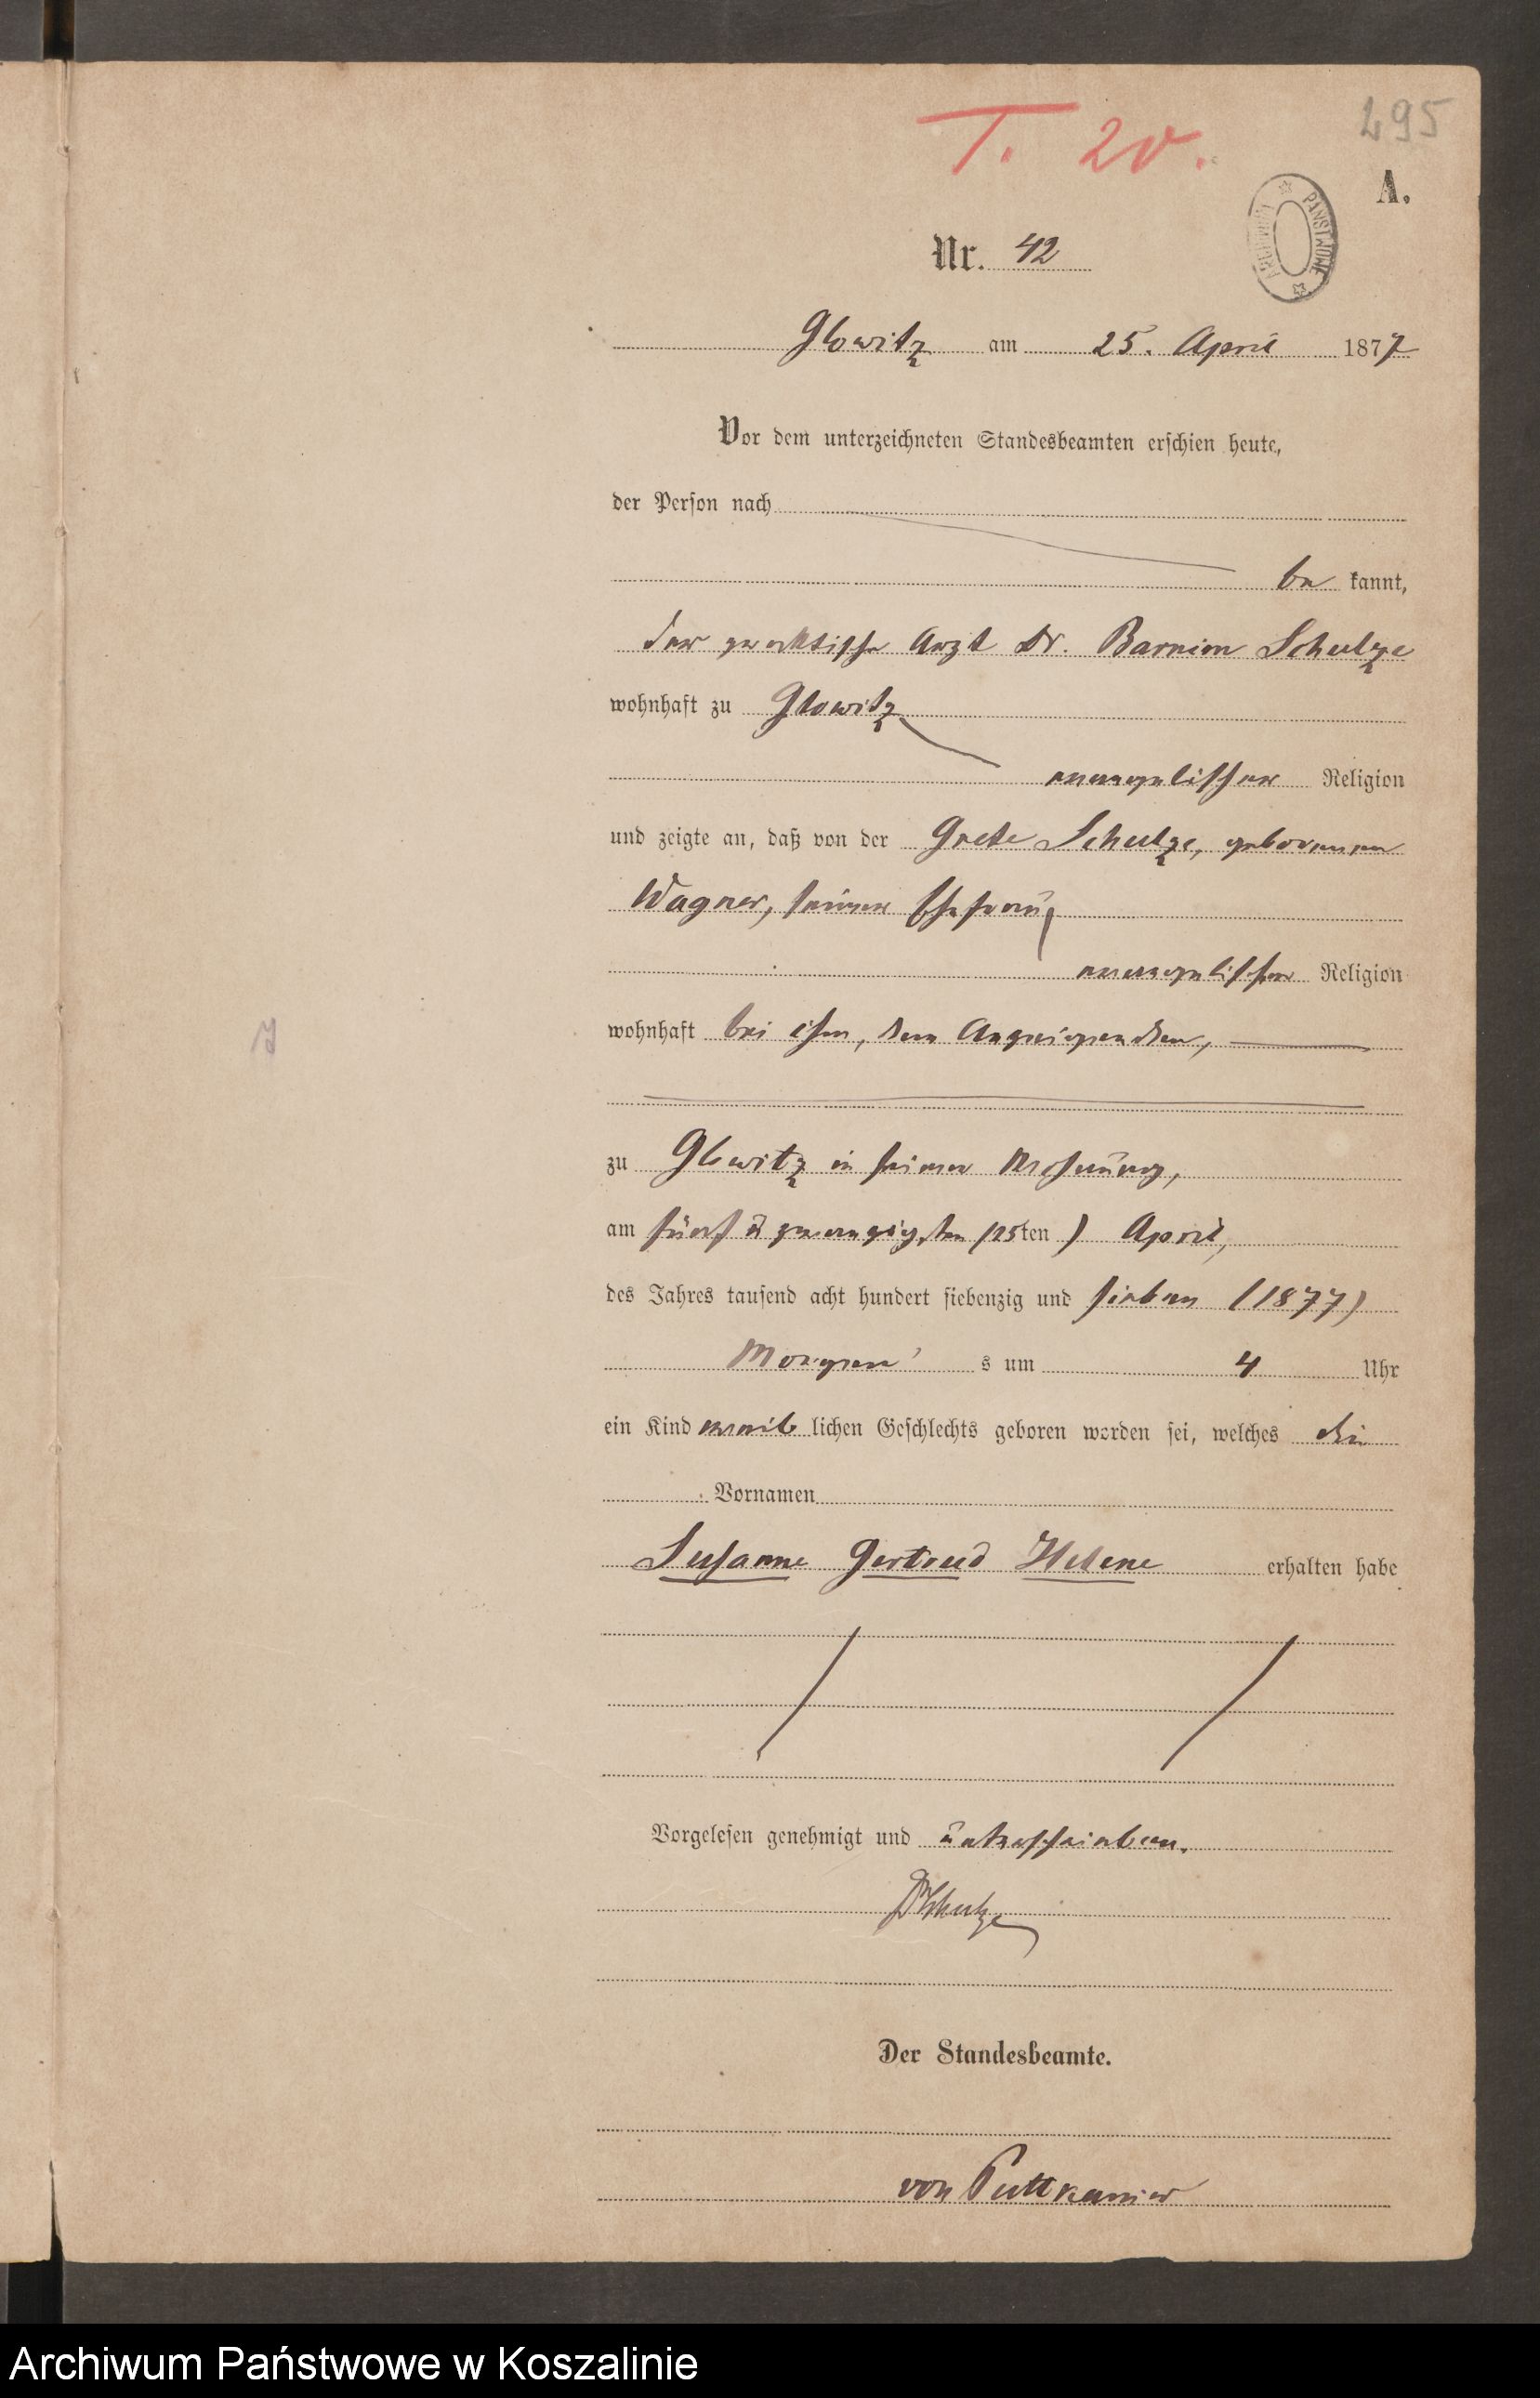 T. 20.
295
A.
ARCHIWUM PAŃSTWOWE
Nr. 42
Glowitz am 25. April 1877
Vor dem unterzeichneten Standesbeamten erschien heute,
der Person nach
be kannt,
der praktische Arzt Dr. Barnim Schulze
wohnhaft zu Glowitz
evangelischer Religion
und zeigte an, daß von der Grete Schulze, geborenen
Wagner, seiner Ehefrau,
evangelischer Religion
wohnhaft bei ihm, dem Anzeigenden,
zu Glowitz in seiner Wohnung,
am fünf u zwanzigsten (25ten) April,
des Jahres tausend acht hundert siebenzig und sieben (1877)
Morgen s um 4 Uhr
ein Kind weib lichen Geschlechts geboren worden sei, welches die
Vornamen
Susanne Gertrud Helene erhalten habe
Vorgelesen genehmigt und unterschrieben.
Schulze
Der Standesbeamte.
von Puttkamer
Archiwum Państwowe w Koszalinie